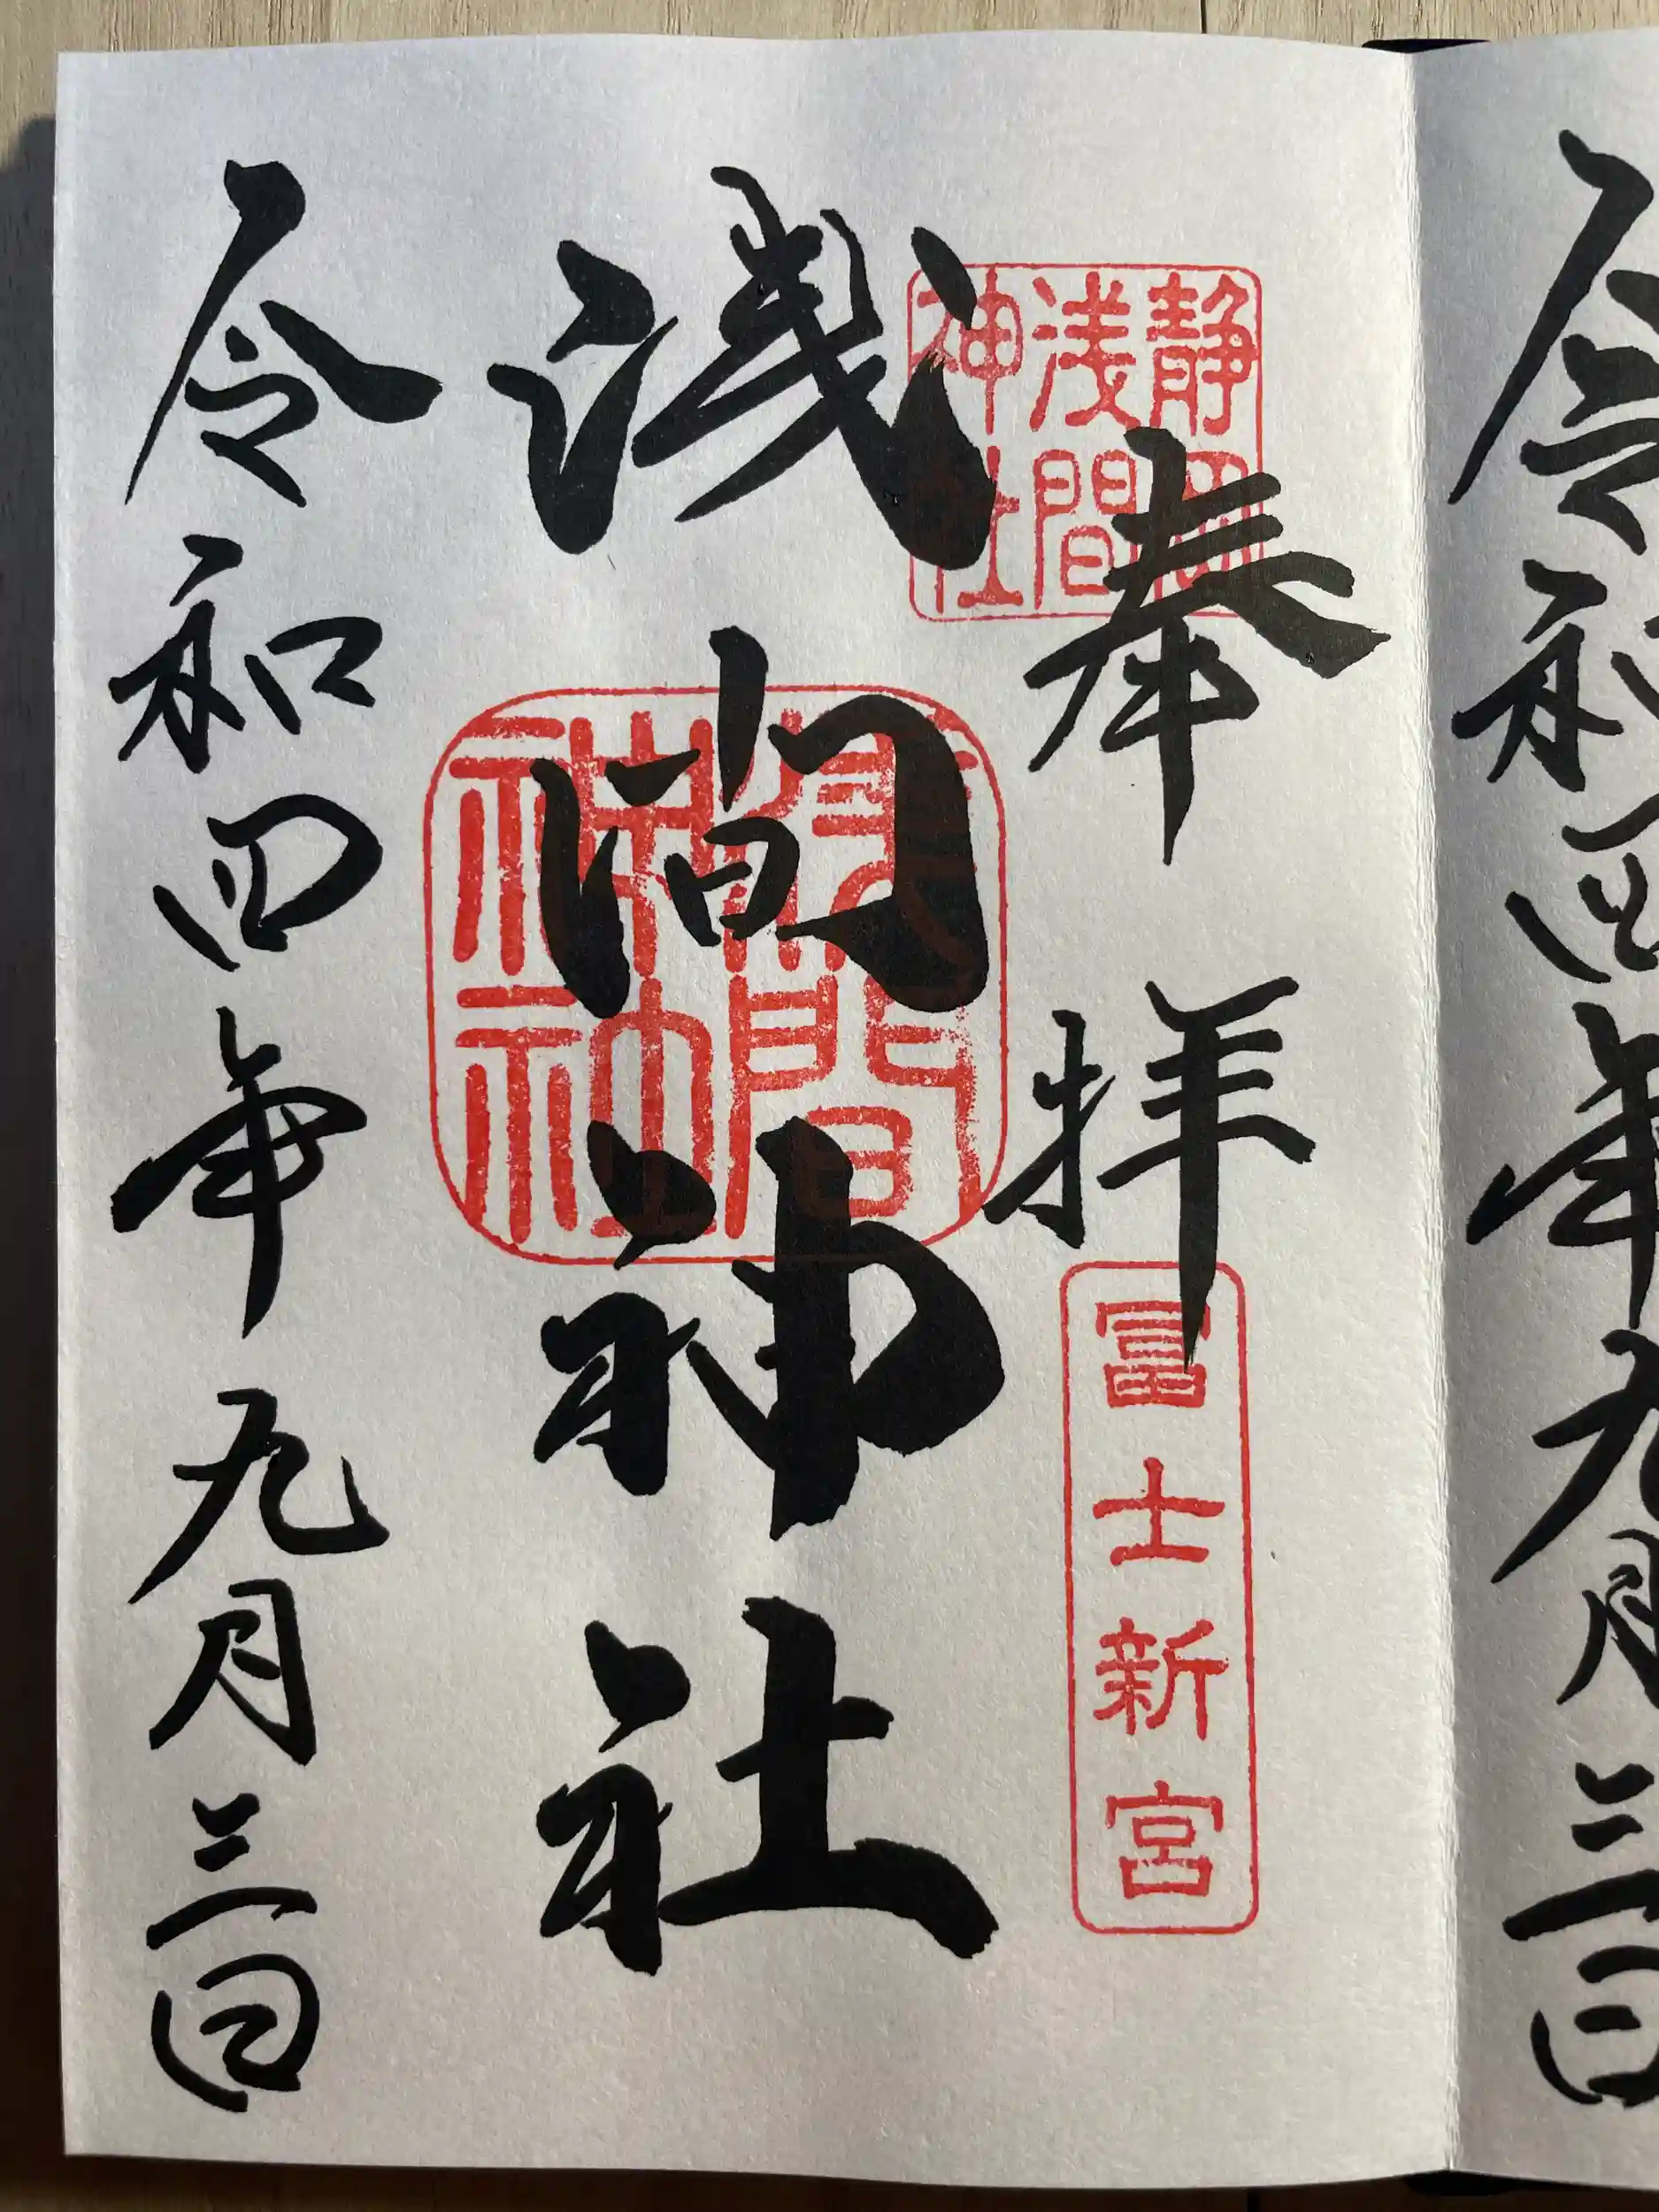 奉拝
静岡
浅間
神社
富士新宮
浅間神社
浅間
神社
令和四年九月三日
令和四年九月三日